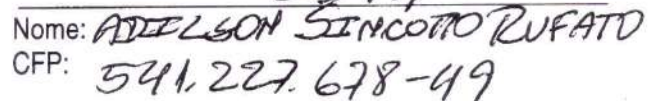 Nome: ADIELSON SINCOTTO RUFATO
CFP: 541.227.678-49